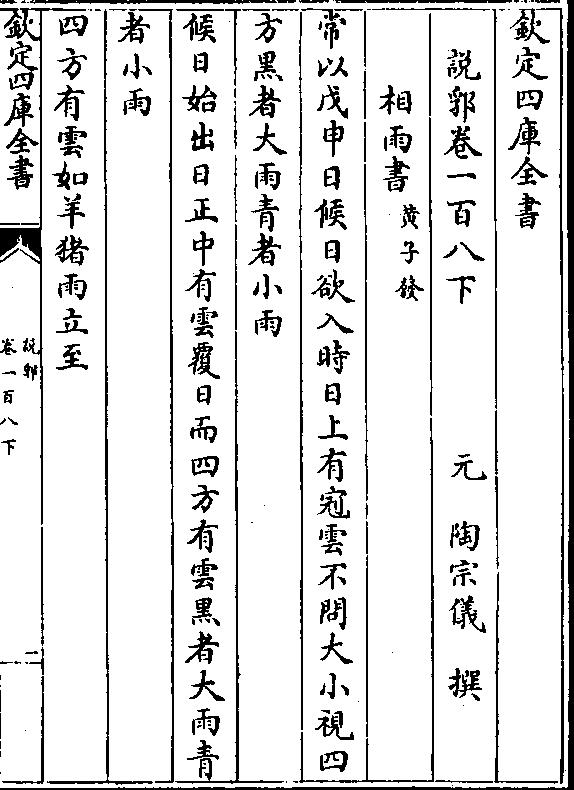 欽定四庫全書
說郛卷一百八下
元 陶宗儀 撰
相雨書 黄子發
常以戊申日候日欲入時日上有冠雲不問大小視四
方黑者大雨青者小雨
候日始出日正中有雲覆日而四方有雲黑者大雨青
者小雨
四方有雲如羊猪雨立至
欽定四庫全書
說郛
卷一百八下
二